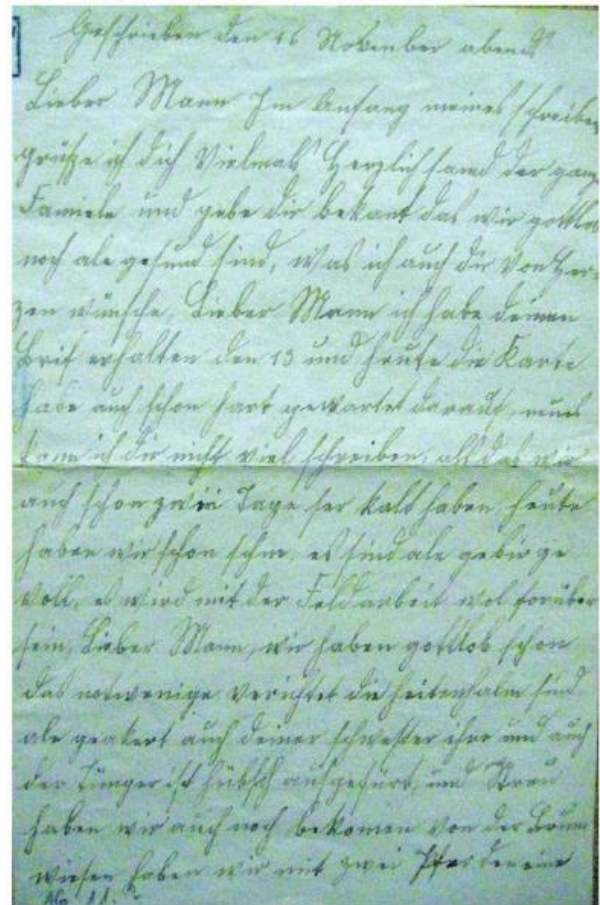 Geschrieben den 16 November abends
Lieber Mann Im Anfang meines schreiben
grüße ich dich Vielmals Herzlich samd der ganz
Famiele und gebe dir bekant das wir gottlob
noch ale gesund sind, was ich auch dir von Her-
zen wünsche, Lieber Mann ich habe deinen
Brif erhalten den 13 und heute die Karte
habe auch schon hart gewartet darauf, neues
kann ich dir nicht viel schreiben, als das wir
auch schon zwei Tage ser kalt haben heute
haben wir schon schne. es sind ale gebirge
voll, es wird mit der Feldarbeit wol forüber
sein, Lieber Mann, wir haben gottlob schon
das notwenige verichtet die sind
ale geakert auch deiner schwester ihre und auch
der Dünger ist hübsch ausgefürt, und Streu
haben wir auch noch bekomen von der
wiesen haben wir mit zwei Pferden eine